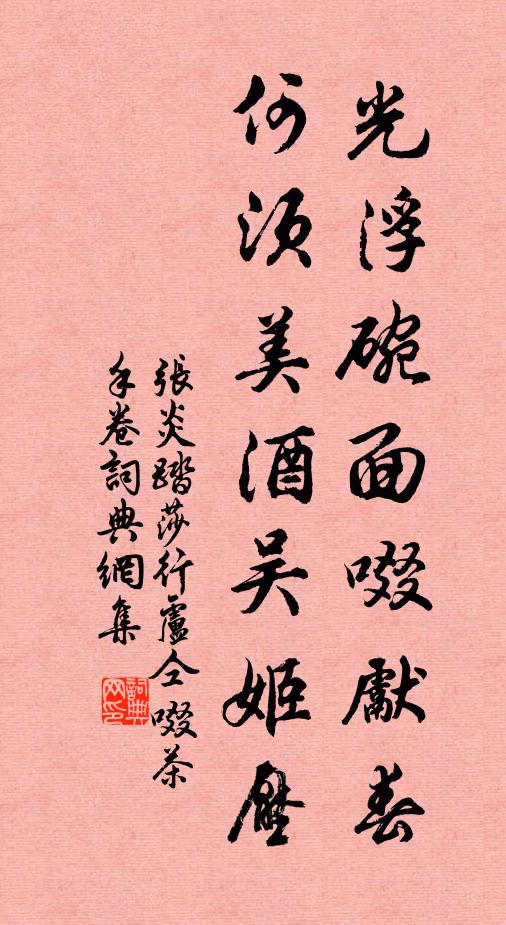 光浮碗面啜獻春
何須美酒吳姬壓
張炎踏莎行盧仝啜茶
手卷詞典網集
詞典網印